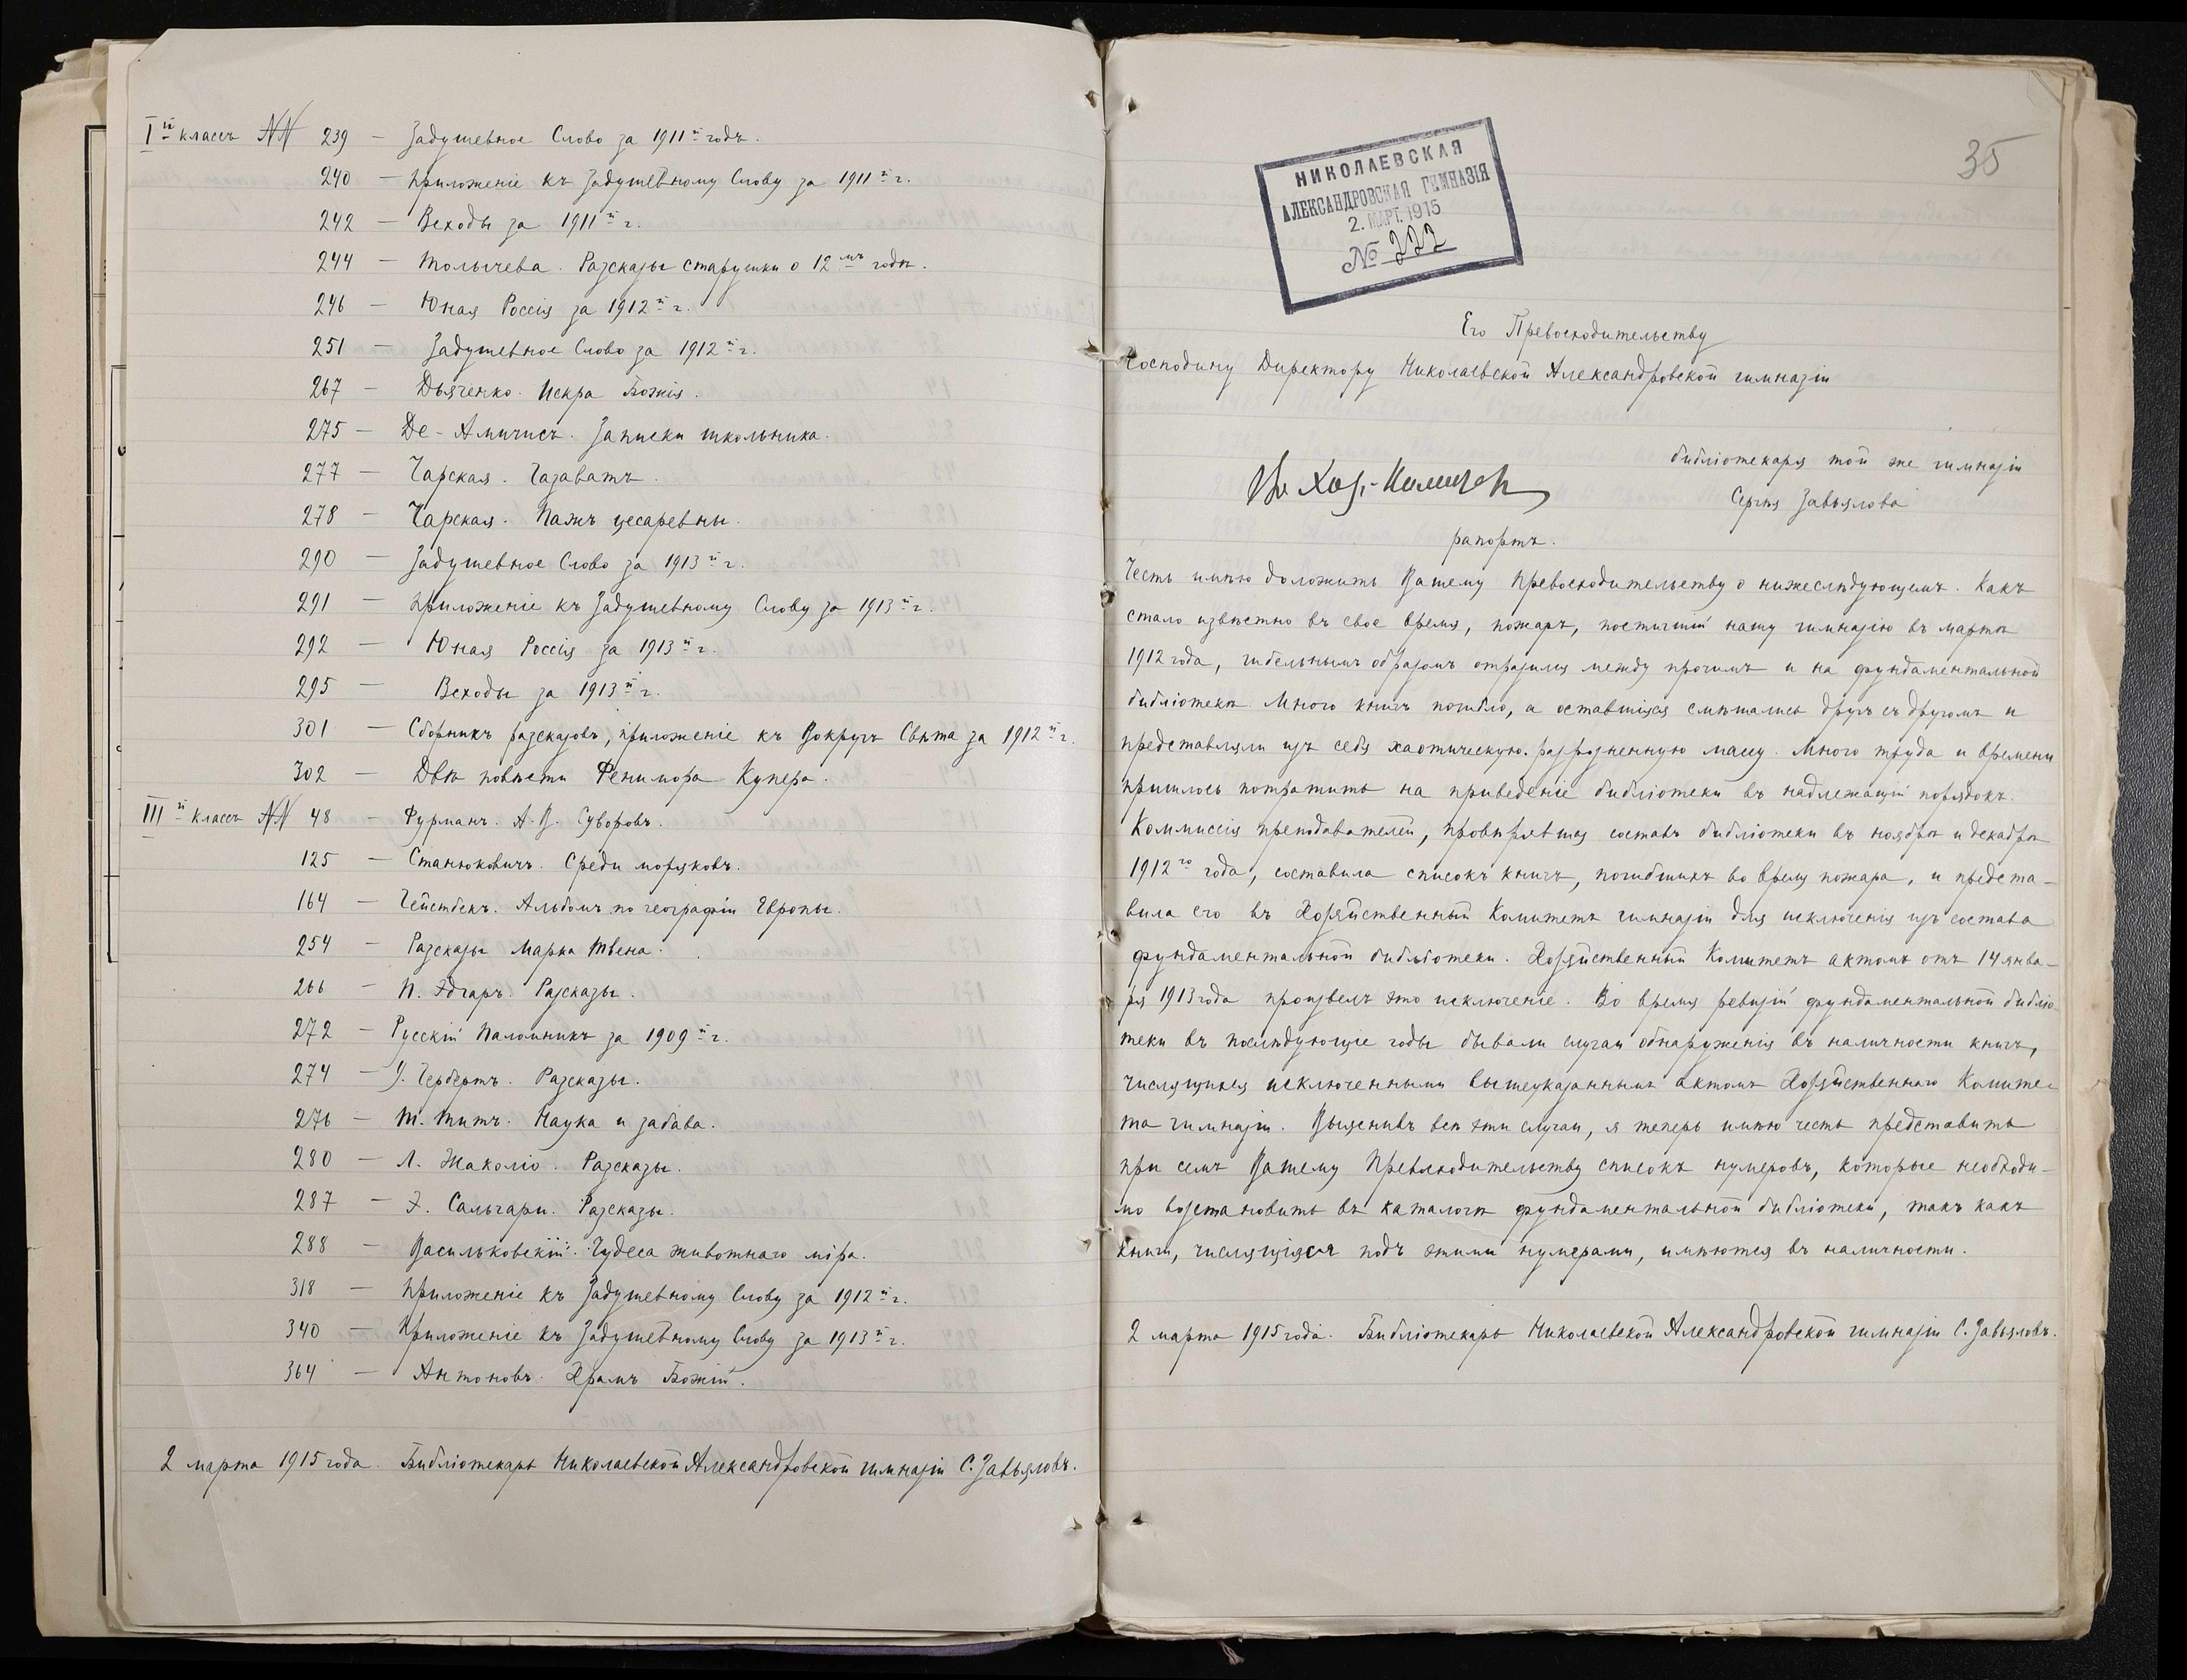 Iй классъ NN 239 — Задушевное Слово за 1911й годъ.
240 — Приложеніе къ Задушевному Слову за 1911й г.
242 — Всходы за 1911й г.
244 — Толычева. Разсказы старушки о 12мъ годѣ.
246 — Юная Россія за 1912й г.
251 — Задушевное Слово за 1912й г.
267 — Дьяченко. Искра Божія.
275 — Де-Амичисъ. Записки школьника.
277 — Чарская. Газаватъ.
278 — Чарская. Пажъ цесаревны.
290 — Задушевное Слово за 1913й г.
291 — Приложеніе къ Задушевному Слову за 1913й г.
292 — Юная Россія за 1913й г.
295 — Всходы за 1913й г.
301 — Сборникъ разсказовъ, приложеніе къ Вокругъ Свѣта за 1912й г.
302 — Двѣ повѣсти Фенимора Купера.
IIIй классъ NN 48 — Фурманъ. А.В. Суворовъ.
125 — Станюковичъ. Среди моряковъ.
164 — Гейстбекъ. Альбомъ по географіи Европы.
254 — Разсказы Марка Твена.
266 — П. Эдгаръ. Разсказы.
272 — Русскій Паломникъ за 1909й г.
274 — У. Гербертъ. Разсказы.
276 — Т. Титъ. Наука и забава.
280 — Л. Жаколіо. Разсказы.
287 — Э. Сальгари. Разсказы.
288 — Васильковскій. Чудеса животнаго міра.
318 — Приложеніе къ Задушевному Слову за 1912й г.
340 — Приложеніе къ Задушевному Слову за 1913й г.
364 — Антоновъ. Храмъ Божій.
2 марта 1915 года. Библіотекарь Николаевской Александровской гимназіи С. Завьяловъ.
35
НИКОЛАЕВСКАЯ
АЛЕКСАНДРОВСКАЯ ГИМНАЗІЯ
2. МАРТ. 1915
№ 222
Его Превосходительству
Господину Директору Николаевской Александровской гимназіи
библіотекаря той же гимназіи
Сергѣя Завьялова
Въ Хоз.
рапортъ.
Честь имѣю доложить Вашему Превосходительству о нижеслѣдующемъ. Какъ
стало извѣстно въ свое время, пожаръ, постигшій нашу гимназію въ мартѣ
1912 года, гибельнымъ образомъ отразился между прочимъ и на фундаментальной
библіотекѣ. Много книгъ погибло, а оставшіяся смѣшались другъ съ другомъ и
представляли изъ себя хаотическую разрозненную массу. Много труда и времени
пришлось потратить на приведеніе библіотеки въ надлежащій порядокъ.
Коммиссія преподавателей, провѣрявшая составъ библіотеки въ ноябрѣ и декабрѣ
1912го года, составила списокъ книгъ, погибшихъ во время пожара, и предста-
вила его въ Хозяйственный Комитетъ гимназіи для исключенія изъ состава
фундаментальной библіотеки. Хозяйственный Комитетъ актомъ отъ 14 янва-
ря 1913 года произвелъ это исключеніе. Во время ревизій фундаментальной библіо-
теки въ послѣдующіе годы бывали случаи обнаруженія въ наличности книгъ,
числящихся исключенными вышеуказаннымъ актомъ Хозяйственнаго Комите-
та гимназіи. Выяснивъ всѣ эти случаи, я теперь имѣю честь представить
при семъ Вашему Превосходительству списокъ нумеровъ, которые необходи-
мо возстановить въ каталогѣ фундаментальной библіотеки, такъ какъ
книги, числящіяся подъ этими нумерами, имѣются въ наличности.
2 марта 1915 года. Библіотекарь Николаевской Александровской гимназіи С. Завьяловъ.